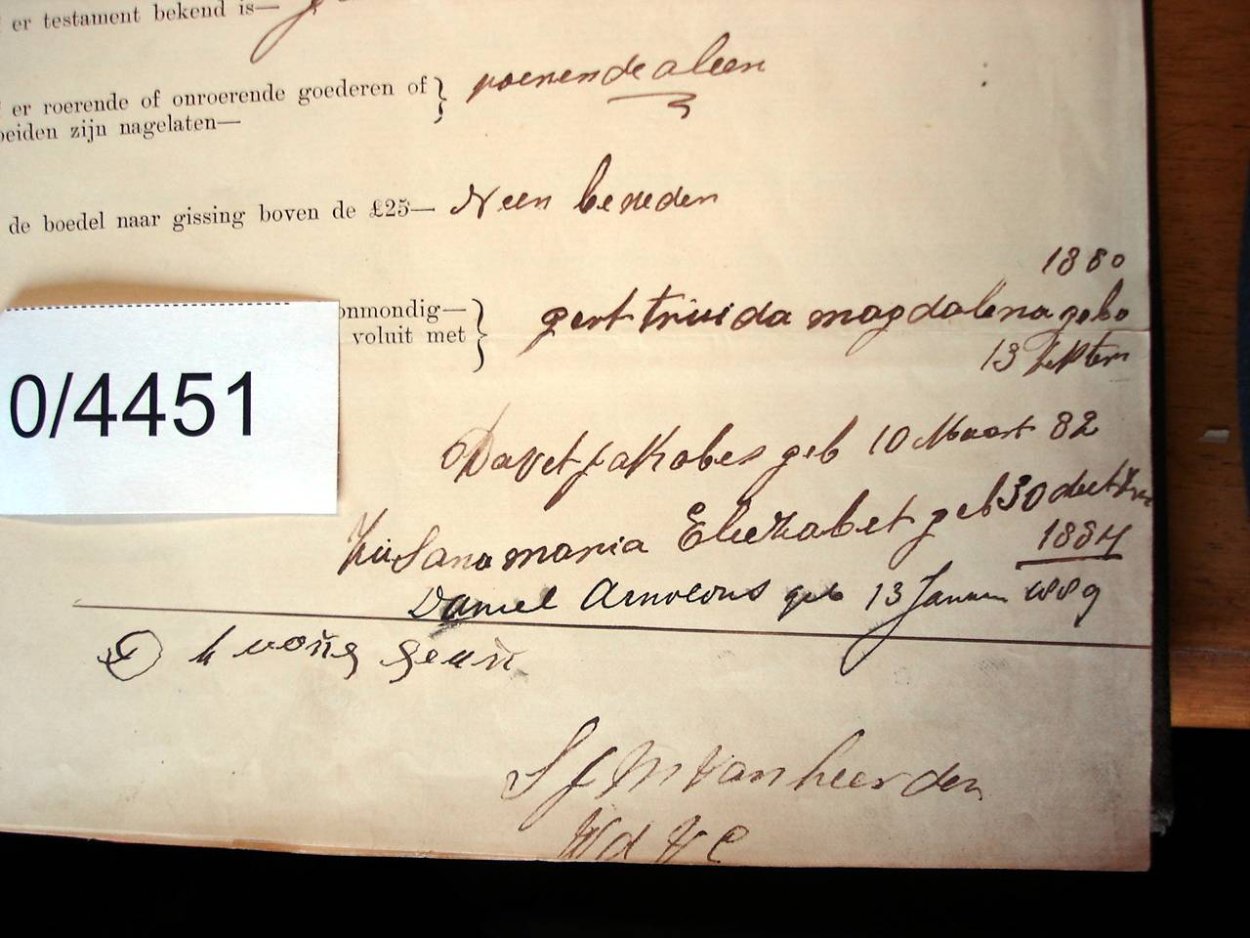 er testament bekend is—
er roerende of onroerende goederen of } roerende aleen
beiden zijn nagelaten—
de boedel naar gissing boven de £25— Neen beneden
1880
onmondig— gertruida magdalena gebo
voluit met } 13 Septem
0/4451
Davet jakobes geb 10 Maart 82
Susana maria Eliezabet geb 30
1884
Daniel Arnoldus geb 13 Januari 1889
S J M Van heerden
Wd